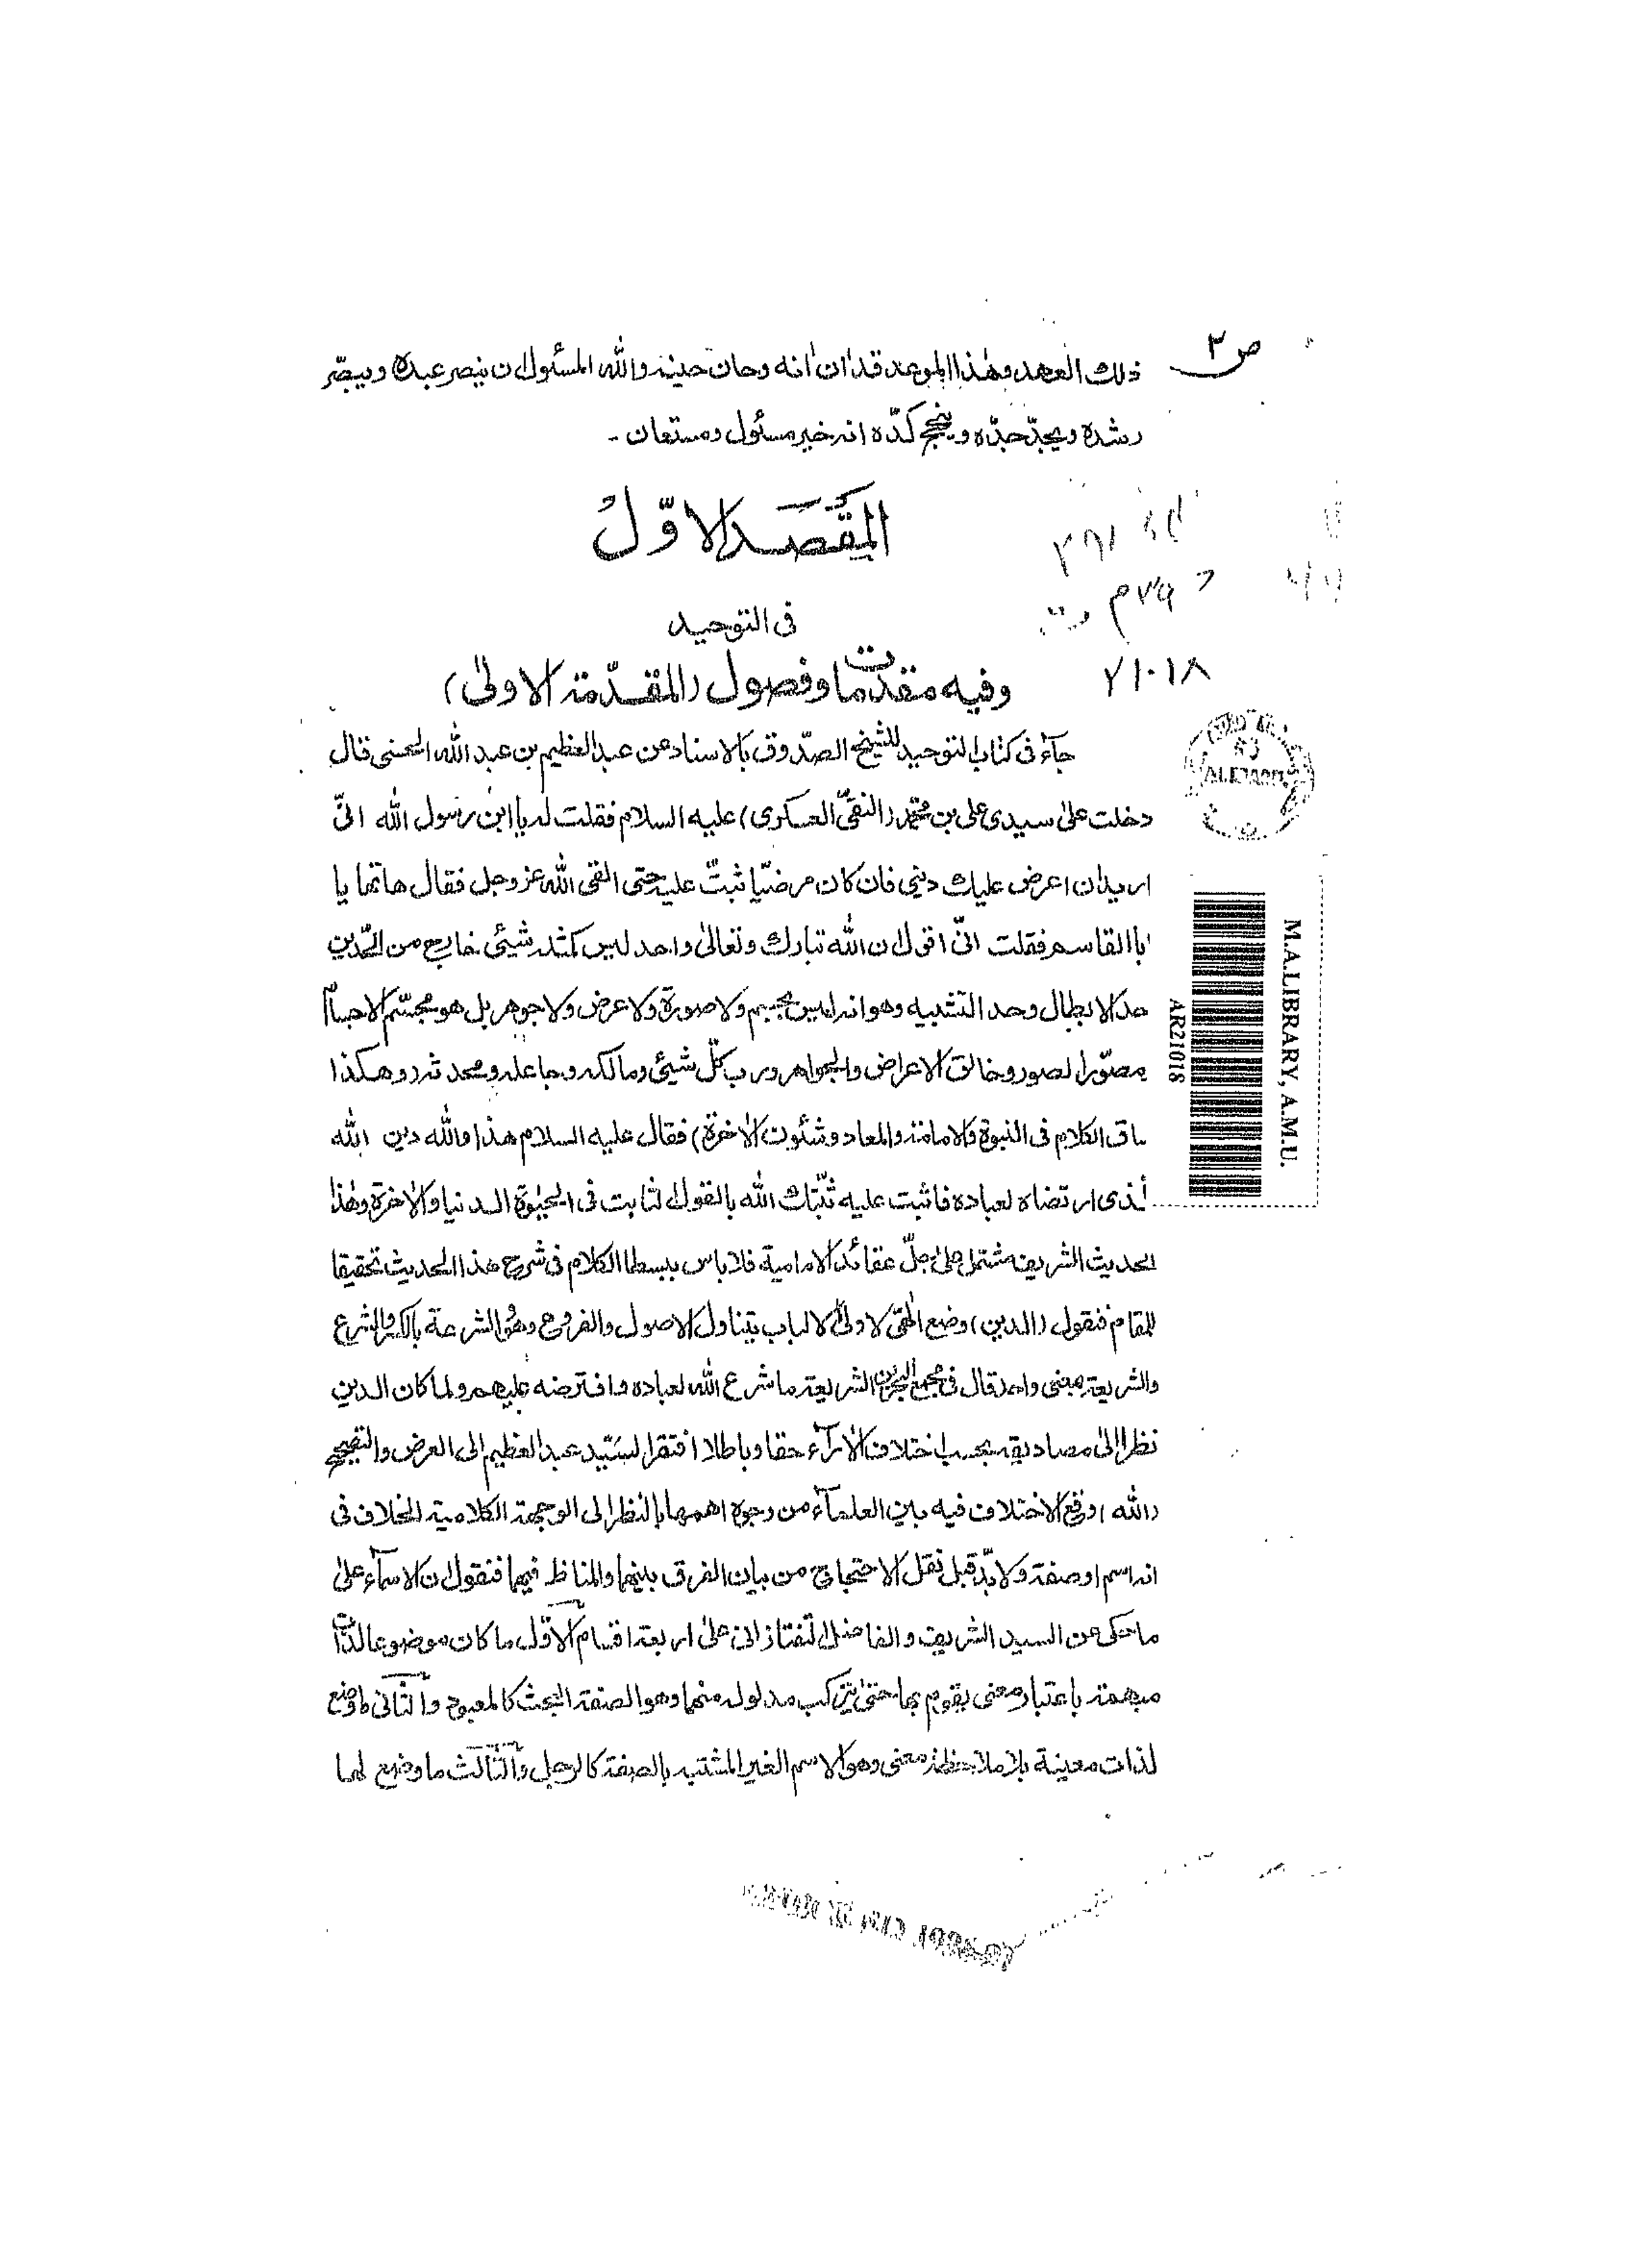 ص ٢
ذلك العهد وهٰذا الموعد قد اٰن اٰنه وحان حينه والله المسئول ان ينصر عبده ويبصّر
رشده ويجدّ جدّه وينجح كدّه انه خير مسئول ومستعان -
المَقصَد الاوّلُ
فى التوحيد
وفيه مقدمات وفصول (المقدّمة الاولىٰ)
٢١٠١٨
جآء فى كتاب التوحيد للشيخ الصدّوق بالاسناد عن عبد العظيم بن عبد الله الحسنى قال
دخلت علىٰ سيدى على بن محمّد (النقىّ العسكرى) عليه السلام فقلت له يا ابن رسول الله انىّ
اريد ان اعرض عليك دينى فان كان مرضيّا ثبتّ عليه حتى القى الله عز وجل فقال هاتها يا
ابا القاسم فقلت انىّ اقول ان الله تبارك وتعالىٰ واحد ليس كمثله شيئى خارج من الحّدين
حد الابطال وحد التشبيه وهو انه ليس بجسم ولا صورة ولا عرض ولا جوهر بل هو مجسّم الاجسام
مصوّر الصور وخالق الاعراض والجواهر ورب كلّ شيئى ومالكه وجاعله ومحدثه (وهكذا
ساق الكلام فى النبوة والامامة والمعاد وشئون الاٰخرة) فقال عليه السلام هذا والله دين الله
الذى ارتضاه لعباده فاثبت عليه ثبّتك الله بالقول الثابت فى الحيٰوة الدنيا والاٰخرة وهٰذا
الحديث الشريف مشتمل علىٰ جلّ عقائد الامامية فلا باس ببسط الكلام فى شرح هذا الحديث تحقيقا
للمقام فنقول (الدين) وضع الٰهىّ لاولى الالباب يتناول الاصول والفروع وهو الشرعة بالكسر والشرع
والشريعة بمعنى واحد قال فى مجمع البحرين الشريعة ما شرع الله لعباده وافترضه عليهم ولما كان الدين
نظرا الىٰ مصاديقه بحسب اختلاف الاٰرآء حقا وباطلا افتقر السيّد عبد العظيم الى العرض والتصحيح
(الله) وقع الاختلاف فيه بين العلمآء من وجوه اهمها بالنظر الى الوجهة الكلامية الخلاف فى
انه اسم او صفة ولا بدّ قبل نقل الاحتجاج من بيان الفرق بينهما والمناط فيهما فنقول ان الاسمآء علىٰ
ما حكى عن السيد الشريف والفاضل التفتازانى علىٰ اربعة اقسام الاوّل ما كان موضوعا لذات
مبهمة باعتبار معنى يقوم بها حتىٰ يتركب مدلوله منهما وهو الصفة البحث كالمعبود والثانى ما وضع
لذات معينة بلا ملاحظة معنى وهو الاسم الغير المشتبه بالصفة كالرجل والثالث ما وضع لهما
M.A.LIBRARY, A.M.U.
AR21018